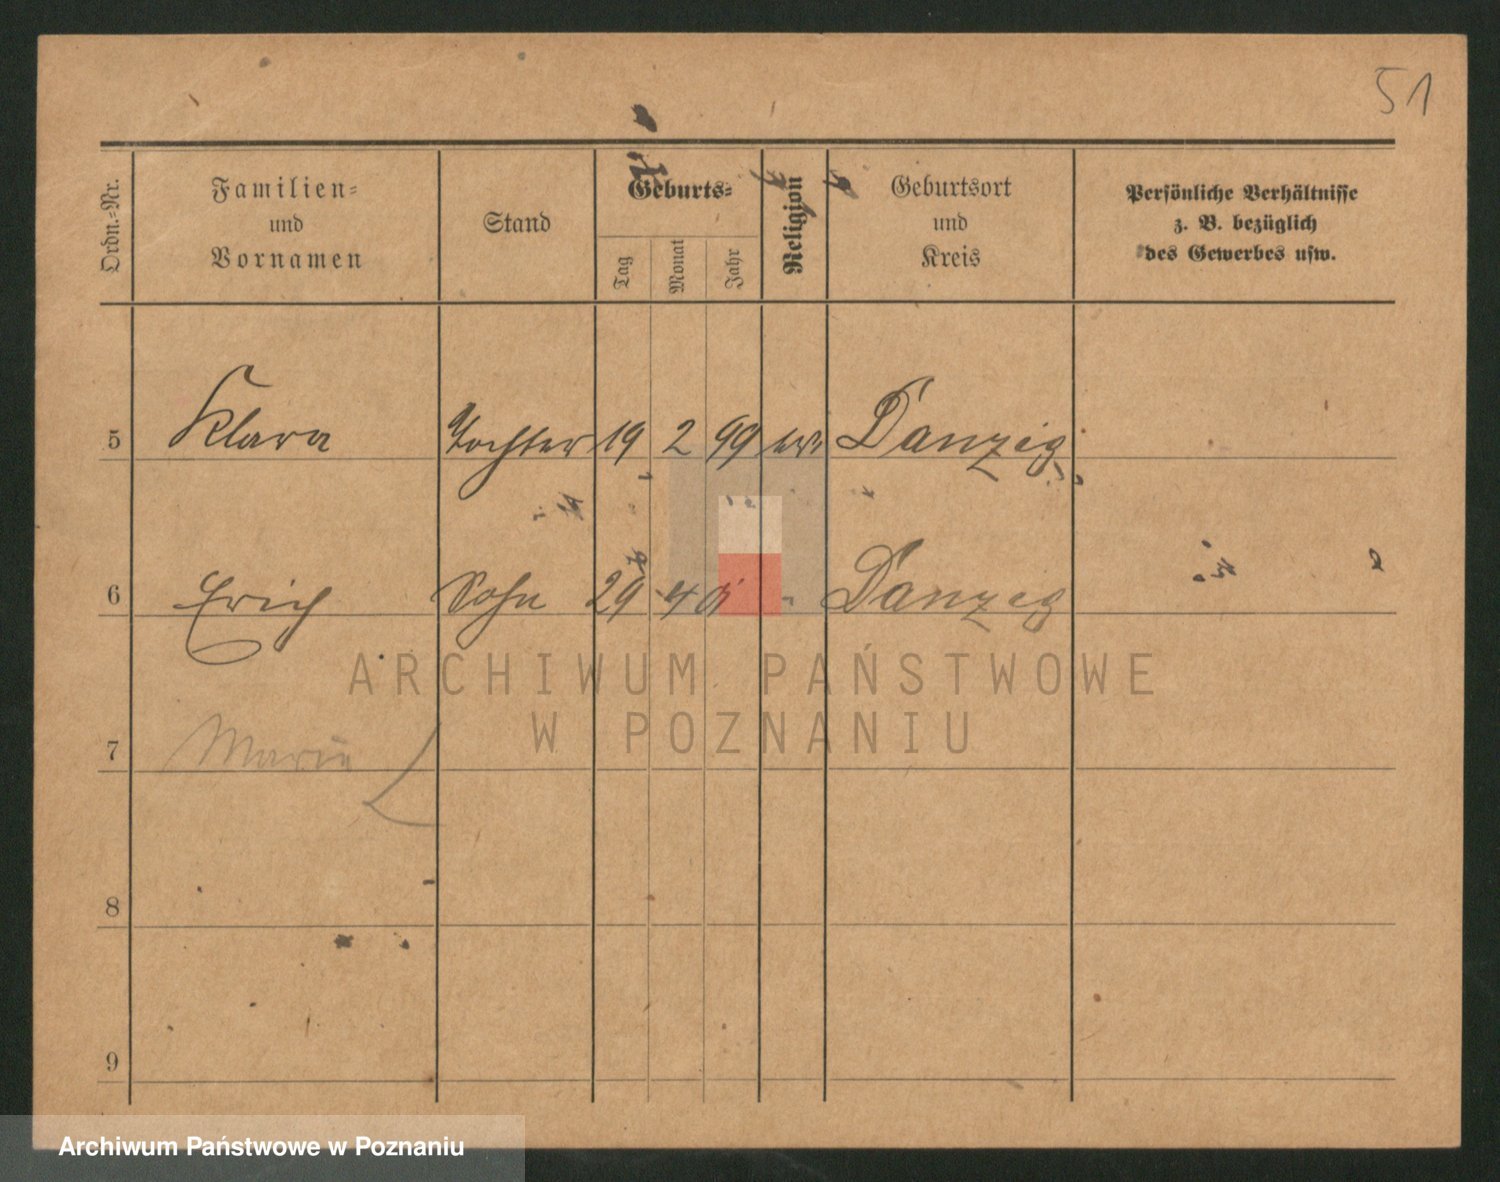 51
Ordn.-Nr.
Familien-
und
Vornamen
Stand
Geburts-
Tag
Monat
Jahr
Religion
Geburtsort
und
Kreis
Persönliche Verhältnisse
z. B. bezüglich
des Gewerbes usw.
5 Klara Tochter 19 2 99 Danzig
6 Erich Sohn 29 4 Danzig
ARCHIWUM PAŃSTWOWE
W POZNANIU
7 Marie
8
9
Archiwum Państwowe w Poznaniu